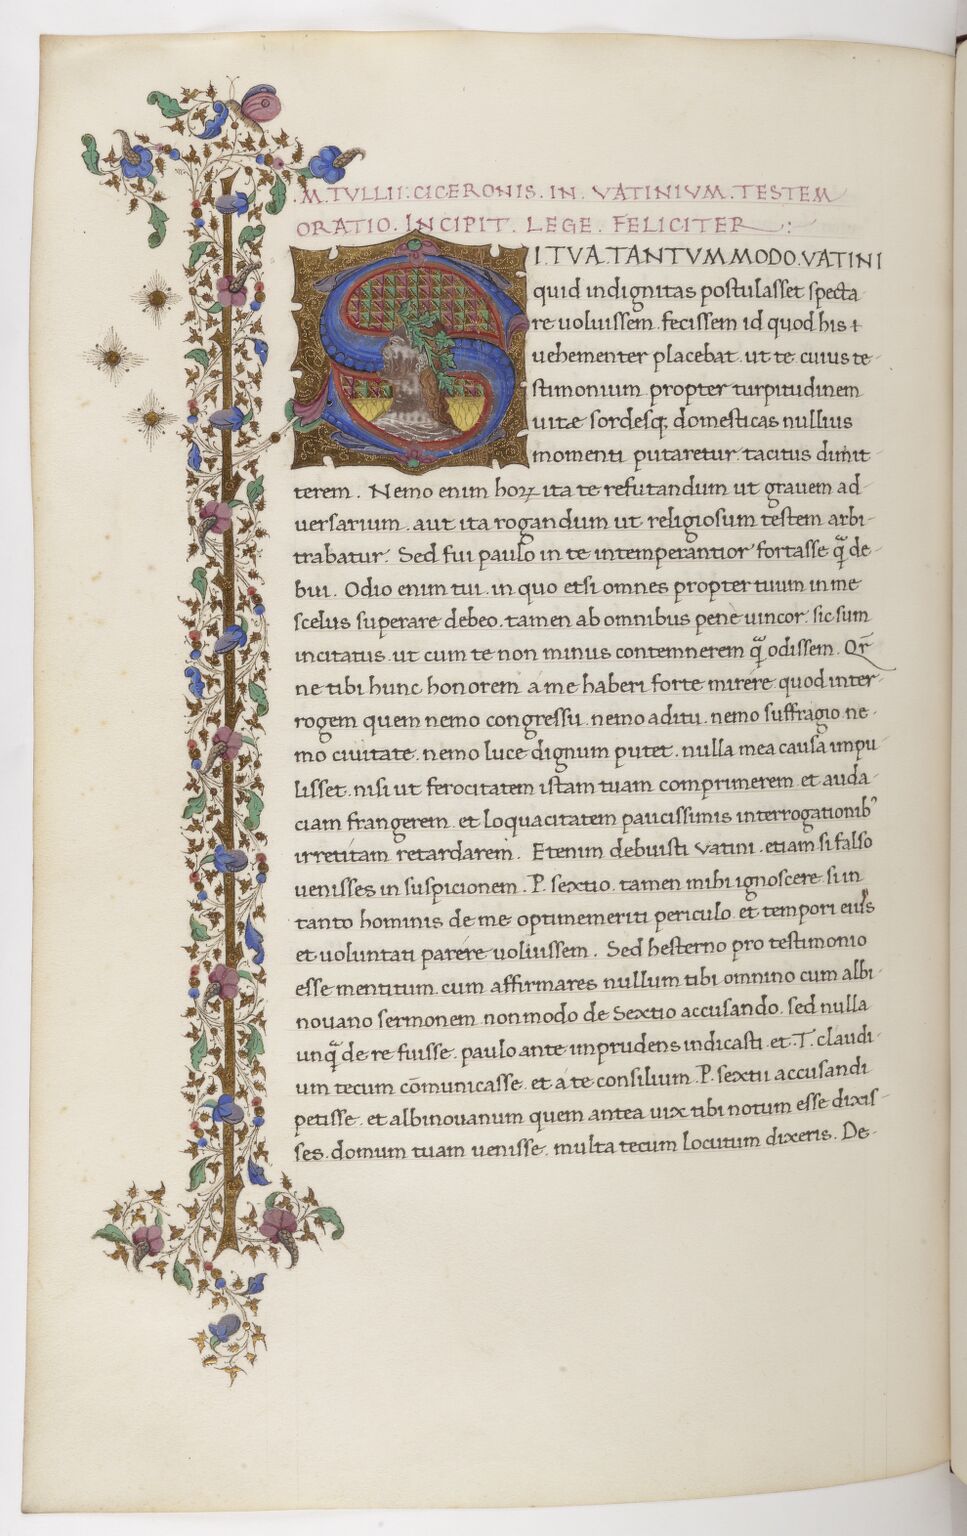 .M.TVLLII.CICERONIS.IN.VATINIVM.TESTEM
ORATIO.INCIPIT.LEGE.FELICITER.:
SI.TVA.TANTVMMODO.VATINI
quid indignitas postulasset specta
re uoluissem fecissem id quod his t
uehementer placebat. ut te cuius te
stimonium propter turpitudinem
uitæ sordesq; domesticas nullius
momenti putaretur. tacitus dimit
terem. Nemo enim hoꝝ ita te refutandum ut grauem ad
uersarium. aut ita rogandum ut religiosum testem arbi-
trabatur. Sed fui paulo in te intemperantior fortasse q̃ de-
bui. Odio enim tui. in quo etsi omnes propter tuum in me
scelus superare debeo. tamen ab omnibus pene uincor. sic sum
incitatus. ut cum te non minus contemnerem q̃ odissem. Qr̃
ne tibi hunc honorem a me haberi forte mirere quod inter-
rogem quem nemo congressu. nemo aditu. nemo suffragio ne-
mo ciuitate. nemo luce dignum putet. nulla mea causa impu
lisset. nisi ut ferocitatem istam tuam comprimerem et auda-
ciam frangerem. et loquacitatem paucissimis interrogationibꝰ
irretitam retardarem. Etenim debuisti Vatini. etiam si falso
uenisses in suspicionem. P. sextio. tamen mihi ignoscere si in
tanto hominis de me optime meriti periculo et tempori eius
et uoluntati parére uoluissem. Sed hesterno pro testimonio
esse mentitum. cum affirmares nullum tibi omnino cum albi-
nouano sermonem non modo de Sextio accusando. sed nulla
unq̃ de re fuisse. paulo ante imprudens indicasti. et .T. claudi-
um tecum cōmunicasse. et a te consilium .P. sextii accusandi
petisse. et albinouanum quem antea uix tibi notum esse dixis-
ses. domum tuam uenisse. multa tecum locutum dixeris. De-